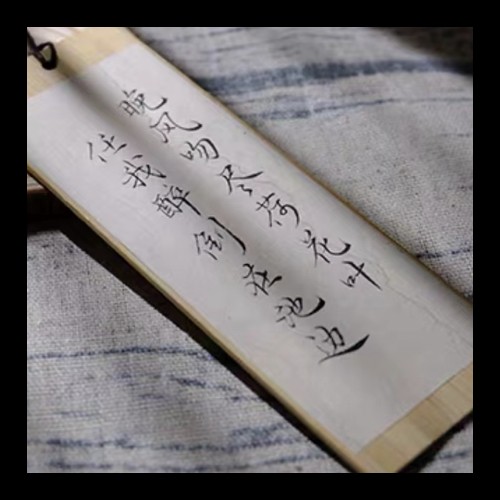 晚风吻尽荷花叶
任我醉倒在池边